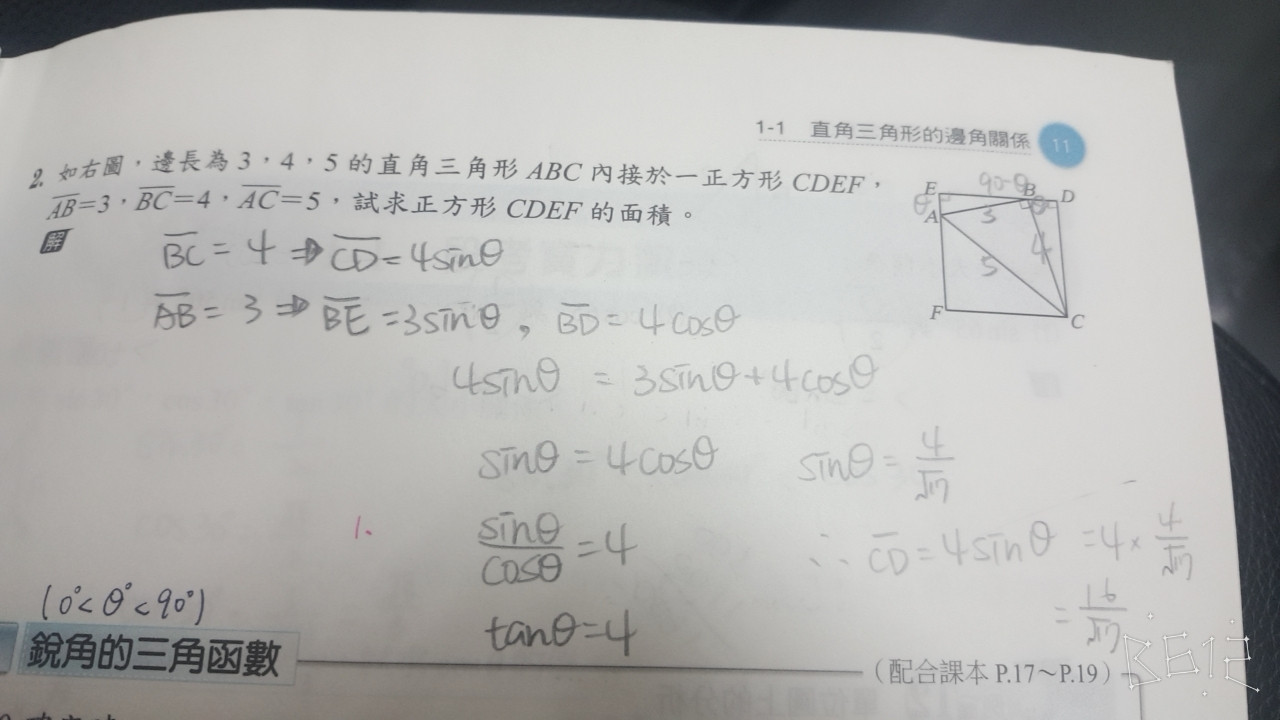 1-1 直角三角形的邊角關係 11
2. 如右圖，邊長為 3，4，5 的直角三角形 ABC 內接於一正方形 CDEF，
AB=3，BC=4，AC=5，試求正方形 CDEF 的面積。
解
E 90-θ B D
θ A 3 θ
4
5
F C
BC = 4 ⇒ CD = 4sinθ
AB = 3 ⇒ BE = 3sinθ, BD = 4cosθ
4sinθ = 3sinθ+4cosθ
sinθ = 4cosθ sinθ = 4/√17
1. sinθ/cosθ = 4 ∴ CD = 4sinθ = 4×4/√17
tanθ=4 = 16/√17
(0°<θ°<90°)
銳角的三角函數 （配合課本 P.17～P.19）
B612